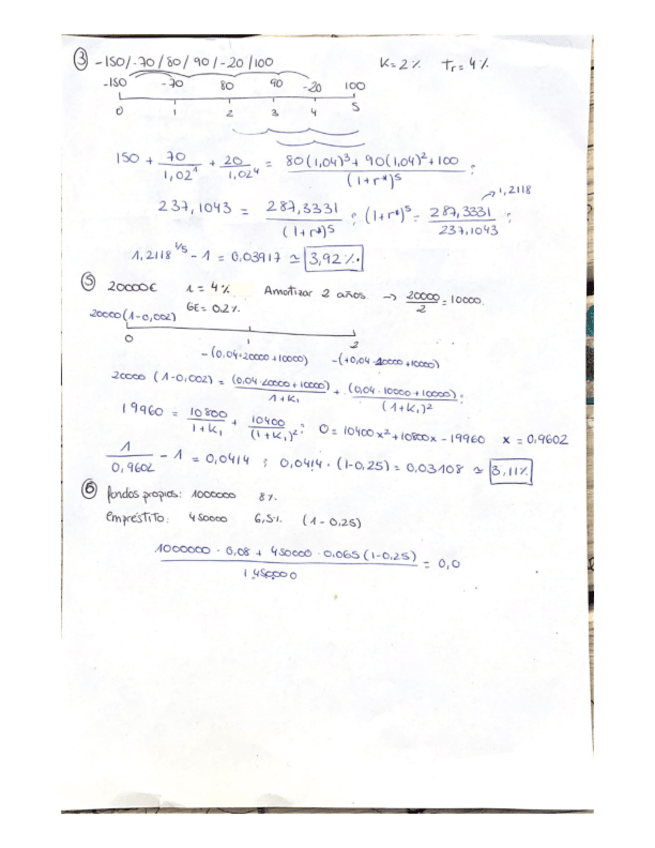 ③ -150/-70/80/90/-20/100 K=2% Tr=4%
-150 -70 80 90 -20 100
0 1 2 3 4 5
150 + 70/1,02¹ + 20/1,02⁴ = (80(1,04)³ + 90(1,04)² + 100)/(1+r*)⁵ ;
237,1043 = 287,3331/(1+r*)⁵ ; (1+r*)⁵ = 287,3331/237,1043 ; → 1,2118
1,2118^1/5 - 1 = 0,03917 ≃ 3,92%.
⑤ 20000€ i = 4% Amortizar 2 años → 20000/2 = 10000.
GE = 0.2%.
20000(1-0,002)
0 1 2
-(0,04·20000+10000) -(+0,04·10000+10000)
20000 (1-0,002) = (0,04·20000+10000)/(1+K₁) + (0,04·10000+10000)/(1+K₁)² ;
19960 = 10800/(1+K₁) + 10400/(1+K₁)² ; 0 = 10400x² + 10800x - 19960 x = 0,9602
1/0,9602 - 1 = 0,0414 ; 0,0414 · (1-0,25) = 0,03108 ≃ 3,11%
⑥ fondos propios: 1000000 8%
empréstito: 450000 6,5%. (1-0,25)
(1000000 · 0,08 + 450000 · 0,065 (1-0,25))/1450000 = 0,0